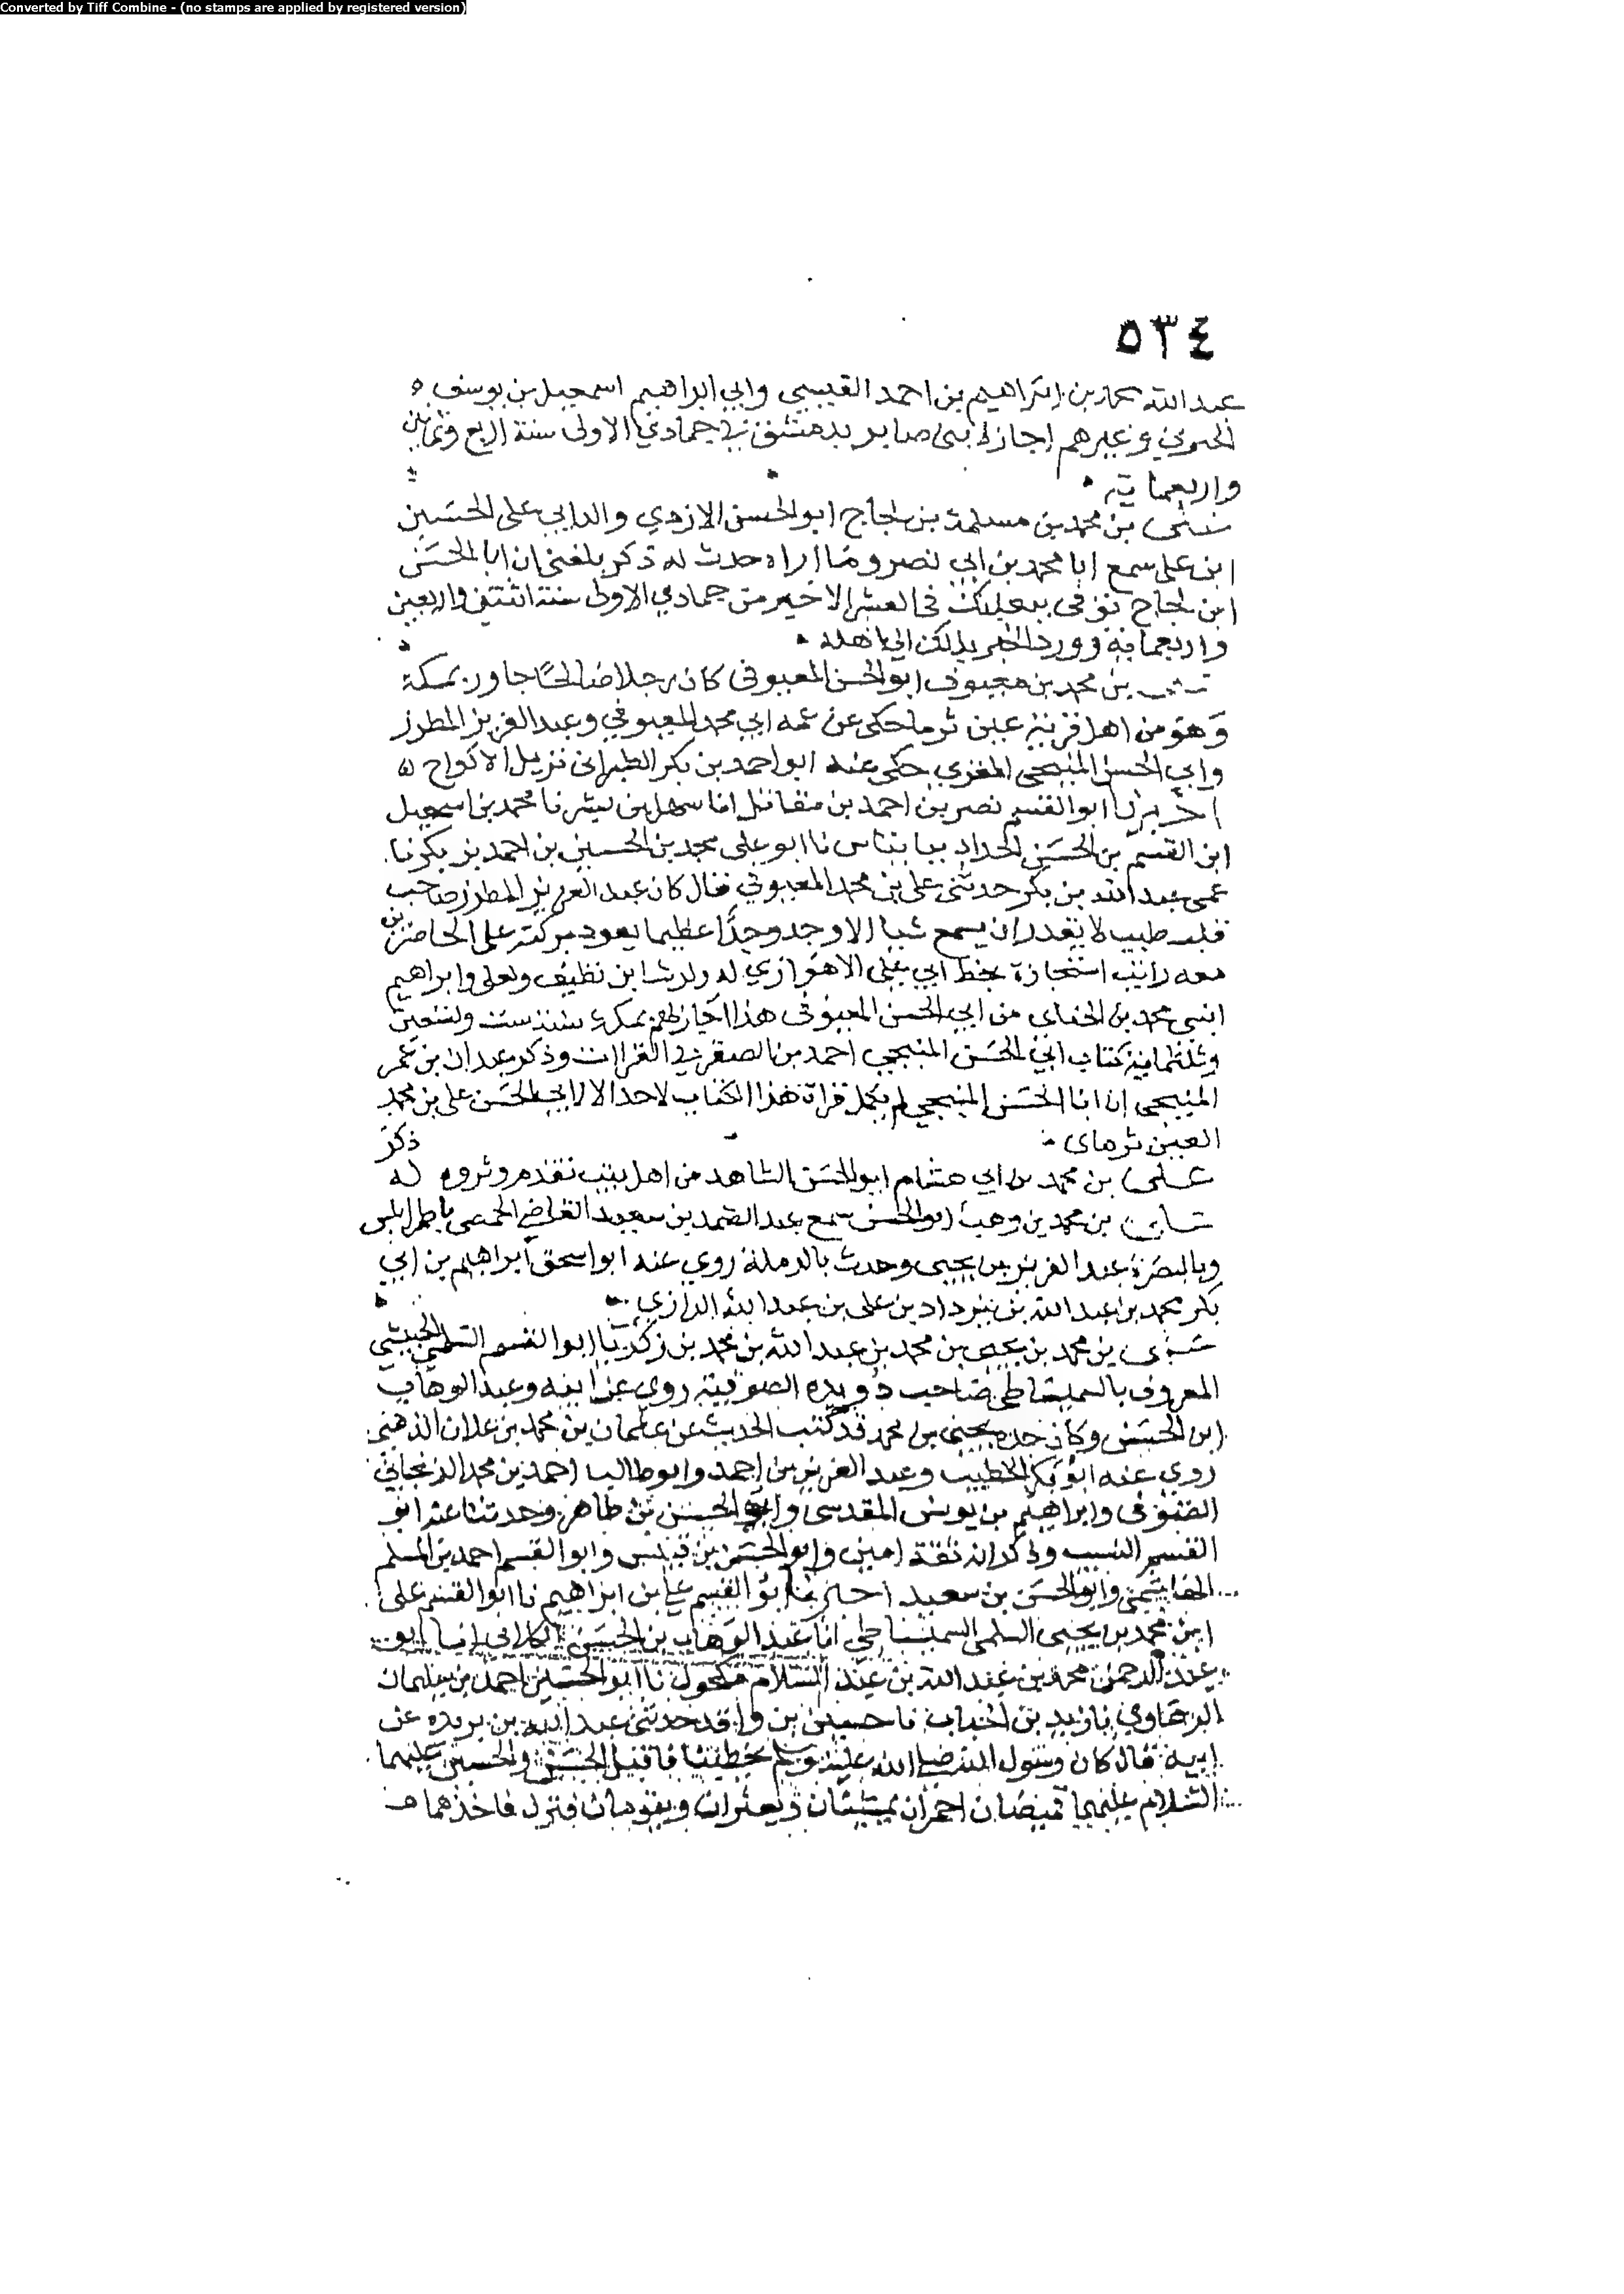 Converted by Tiff Combine - (no stamps are applied by registered version)
٥٣٤
عبد الله محمد بن ابراهيم بن احمد القيسي وابي ابراهيم اسمعيل بن يوسف
وغيرهم اجازة لبني صابر بدمشق في جمادي الاولى سنة اربع وثمانين
واربعماية
بن محمد بن مسلمة بن لجاج ابو الحسن الازدي والد ابي على الحسين
ابن على سمع ابا محمد بن ابي نصر وما اراه حدث له ذكر بلغني ان ابا الحسن
ابن لجاج توفى ببعلبك في العشر الاخير من جمادي الاولى سنة اثنتين واربعين
واربعماية وورد الخبر بذلك الى اهله
بن محمد بن معيوف ابو الحسن المعيوفى كان رجلا صالحا جاور بمكة
وهو من اهل قرية عين ثرما حكى عن عمه ابي محمد المعيوفي وعبد العزيز المطرز
وابي الحسن المنبجى المقري حكى عنه ابو احمد بن بكر الطبرانى نزيل الاكواح
اخبرنا ابو القسم نصر بن احمد بن مقاتل انا سهل بن بشر نا محمد بن اسمعيل
ابن القسم بن الحسن الحداد ببانياس نا ابو على محمد بن الحسين بن احمد بن بكر نا
عمى عبد الله بن بكر حدثنى على بن محمد المعيوفي قال كان عبد العزيز المطرز صاحب
قلب طيب لا يقدر ان يسمع شيا الا وجد وجدا عظيما يعود بركته على الحاضرين
معه رايت استجازة بخط ابي على الاهوازي له ولرشا بن نظيف ولعلى وابراهيم
ابنى محمد بن الحناى من ابي الحسن المعيوفى هذا اجاز لهم بمكة سنة ست وتسعين
وثلثماية كتاب ابي الحسن المنبجي احمد بن الصقر في القراات وذكر عبدان بن عمر
المنبجى ان ابا الحسن المنبجي لم يكمل قراة هذا الكتاب لاحد الا لابي الحسن على بن محمد
العين ثرماى
ذكر
على بن محمد بن ابي هشام ابو الحسن الشاهد من اهل بيت تقدم وثروه له
بن محمد بن وهب ابو الحسن سمع عبد الصمد بن سعيد القاضي الحمصى باطرابلس
وبالبصرة عبد العزيز بن يحيى وحدث بالرملة روي عنه ابو اسحق ابراهيم بن ابي
بكر محمد بن عبد الله بن يزداد بن على بن عبد الله الرازي
بن محمد بن يحيى بن محمد بن عبد الله بن محمد بن زكريا ابو القسم السلمى الحبيشي
المعروف بالسميساطى صاحب دويره الصوفية روي عن ابيه وعبد الوهاب
ابن الحسن وكان جده يحيى بن محمد قد كتب الحديث عن عثمان بن محمد بن علان الذهبى
روي عنه ابو بكر الخطيب وعبد العزيز بن احمد وابو طالب احمد بن محمد الزنجاني
الصوفى وابراهيم بن يونس المقدسى وابو الحسن بن طاهر وحدثنا عنه ابو
القسم النسيب وذكر انه ثقة امين وابو الحسن بن قبيس وابو القسم احمد بن المسلم
الهاشمى وابو الحسن بن سعيد اخبرنا ابو القسم على بن ابراهيم نا ابو القسم على
ابن محمد بن يحيى السلمى السميساطي انا عبد الوهاب بن الحسن الكلابى انبا ابو
عبد الرحمن محمد بن عبد الله بن عبد السلام مكحول نا ابو الحسين احمد بن سليمان
الرهاوي نا زيد بن الحباب نا حسين بن واقد حدثنى عبد الله بن بريده عن
ابيه قال كان رسول الله صلى الله عليه وسلم يخطبنا فاقبل الحسن والحسين عليهما
السلام عليهما قميصان احمران يمشيان ويعثران ويقومان فنزل فاخذهما